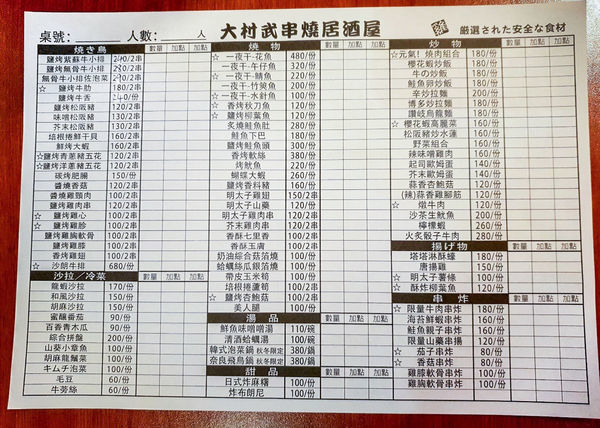 桌號: 人數: 人 大村武串燒居酒屋 厳選された安全な食材
燒き鳥 數量 加點 加點
鹽烤紫蘇牛小排 240/2串
鹽烤無骨牛小排 240/2串
無骨牛小排佐泡菜 /2串
☆ 鹽烤牛肋 180/2串
鹽烤牛舌 240/份
鹽烤松阪豬 120/2串
味噌松阪豬 130/2串
芥末松阪豬 130/2串
培根捲鮮干貝 160/2串
鮮烤大蝦 160/2串
☆鹽烤青蔥豬五花 120/2串
☆鹽烤洋蔥豬五花 120/2串
碳烤肥腸 150/份
醬燒香菇 100/2串
醬燒雞頸肉 100/2串
鹽烤雞肉串 100/2串
☆ 鹽烤雞心 100/2串
☆ 鹽烤雞胗 100/2串
鹽烤雞胸軟骨 100/2串
鹽烤雞膝 100/2串
鹽烤雞翅 100/2串
☆ 沙朗牛排 680/份
沙拉／冷菜 數量 加點 加點
龍蝦沙拉 170/份
和風沙拉 150/份
胡麻沙拉 150/份
蜜釀番茄 90/份
百香青木瓜 90/份
綜合拼盤 200/份
山葵小章魚 100/份
胡麻龍鬚菜 100/份
キムチ泡菜 100/份
毛豆 60/份
牛蒡絲 60/份
燒物 數量 加點 加點
☆ 一夜干-花魚 480/份
一夜干-午仔魚 320/份
☆ 一夜干-鯖魚 220/份
☆ 一夜干-竹筴魚 200/份
☆ 一夜干-水針魚 100/份
☆ 香烤秋刀魚 120/份
☆ 鹽烤柳葉魚 120/份
炙燒鮭魚肚 280/份
鮭魚下巴 180/份
鹽烤鮭魚頭 300/份
香烤軟絲 380/份
烤魷魚 220/份
蝴蝶大蝦 260/份
鹽烤香料豬 160/份
明太子雞翅 150/2串
明太子山藥 120/份
明太子雞肉串 120/2串
芥末雞肉串 120/2串
香酥七里香 100/2串
香酥玉膚 100/2串
奶油綜合菇箔燒 100/份
蛤蠣絲瓜銀箔燒 100/份
帶皮玉米筍 100/份
培根捲蘆筍 100/2串
☆ 鹽烤杏鮑菇 100/份
美人腿 100/份
湯品 數量 加點 加點
鮮魚味噌噌湯 110/碗
清酒蛤蠣湯 100/碗
韓式泡菜鍋 秋冬限定 380/鍋
奈良飛鳥鍋 秋冬限定 380/鍋
甜品 數量 加點 加點
日式炸麻糬 100/份
炸布朗尼 100/份
炒物 數量 加點 加點
☆元氣！燒肉組合 180/份
櫻花蝦炒飯 180/份
牛の炒飯 180/份
鮭魚卵炒飯 180/份
辛炒拉麵 200/份
博多炒拉麵 180/份
讚岐烏龍麵 180/份
☆ 櫻花蝦高麗菜 180/份
松阪豬炒水蓮 160/份
野菜組合 100/份
辣味噌雞肉 180/份
起司歐姆蛋 140/份
芥末歐姆蛋 140/份
蒜香杏鮑菇 150/份
(辣)蒜香雞腳筋 120/份
☆ 燉牛肉 180/份
沙茶生魷魚 200/份
檸檬蝦 260/份
☆ 火炙骰子牛肉 280/份
揚げ物 數量 加點 加點
塔塔淋酥蠔 180/份
唐揚雞 150/份
☆ 明太子薯條 100/份
☆ 酥炸柳葉魚 120/份
串炸 數量 加點 加點
☆ 限量牛肉串炸 180/份
海苔鮮蝦串炸 160/份
鮭魚親子串炸 100/份
限量山藥串揚 120/份
☆ 茄子串炸 80/份
☆ 香菇串炸 80/份
雞膝軟骨串炸 100/份
雞胸軟骨串炸 100/份